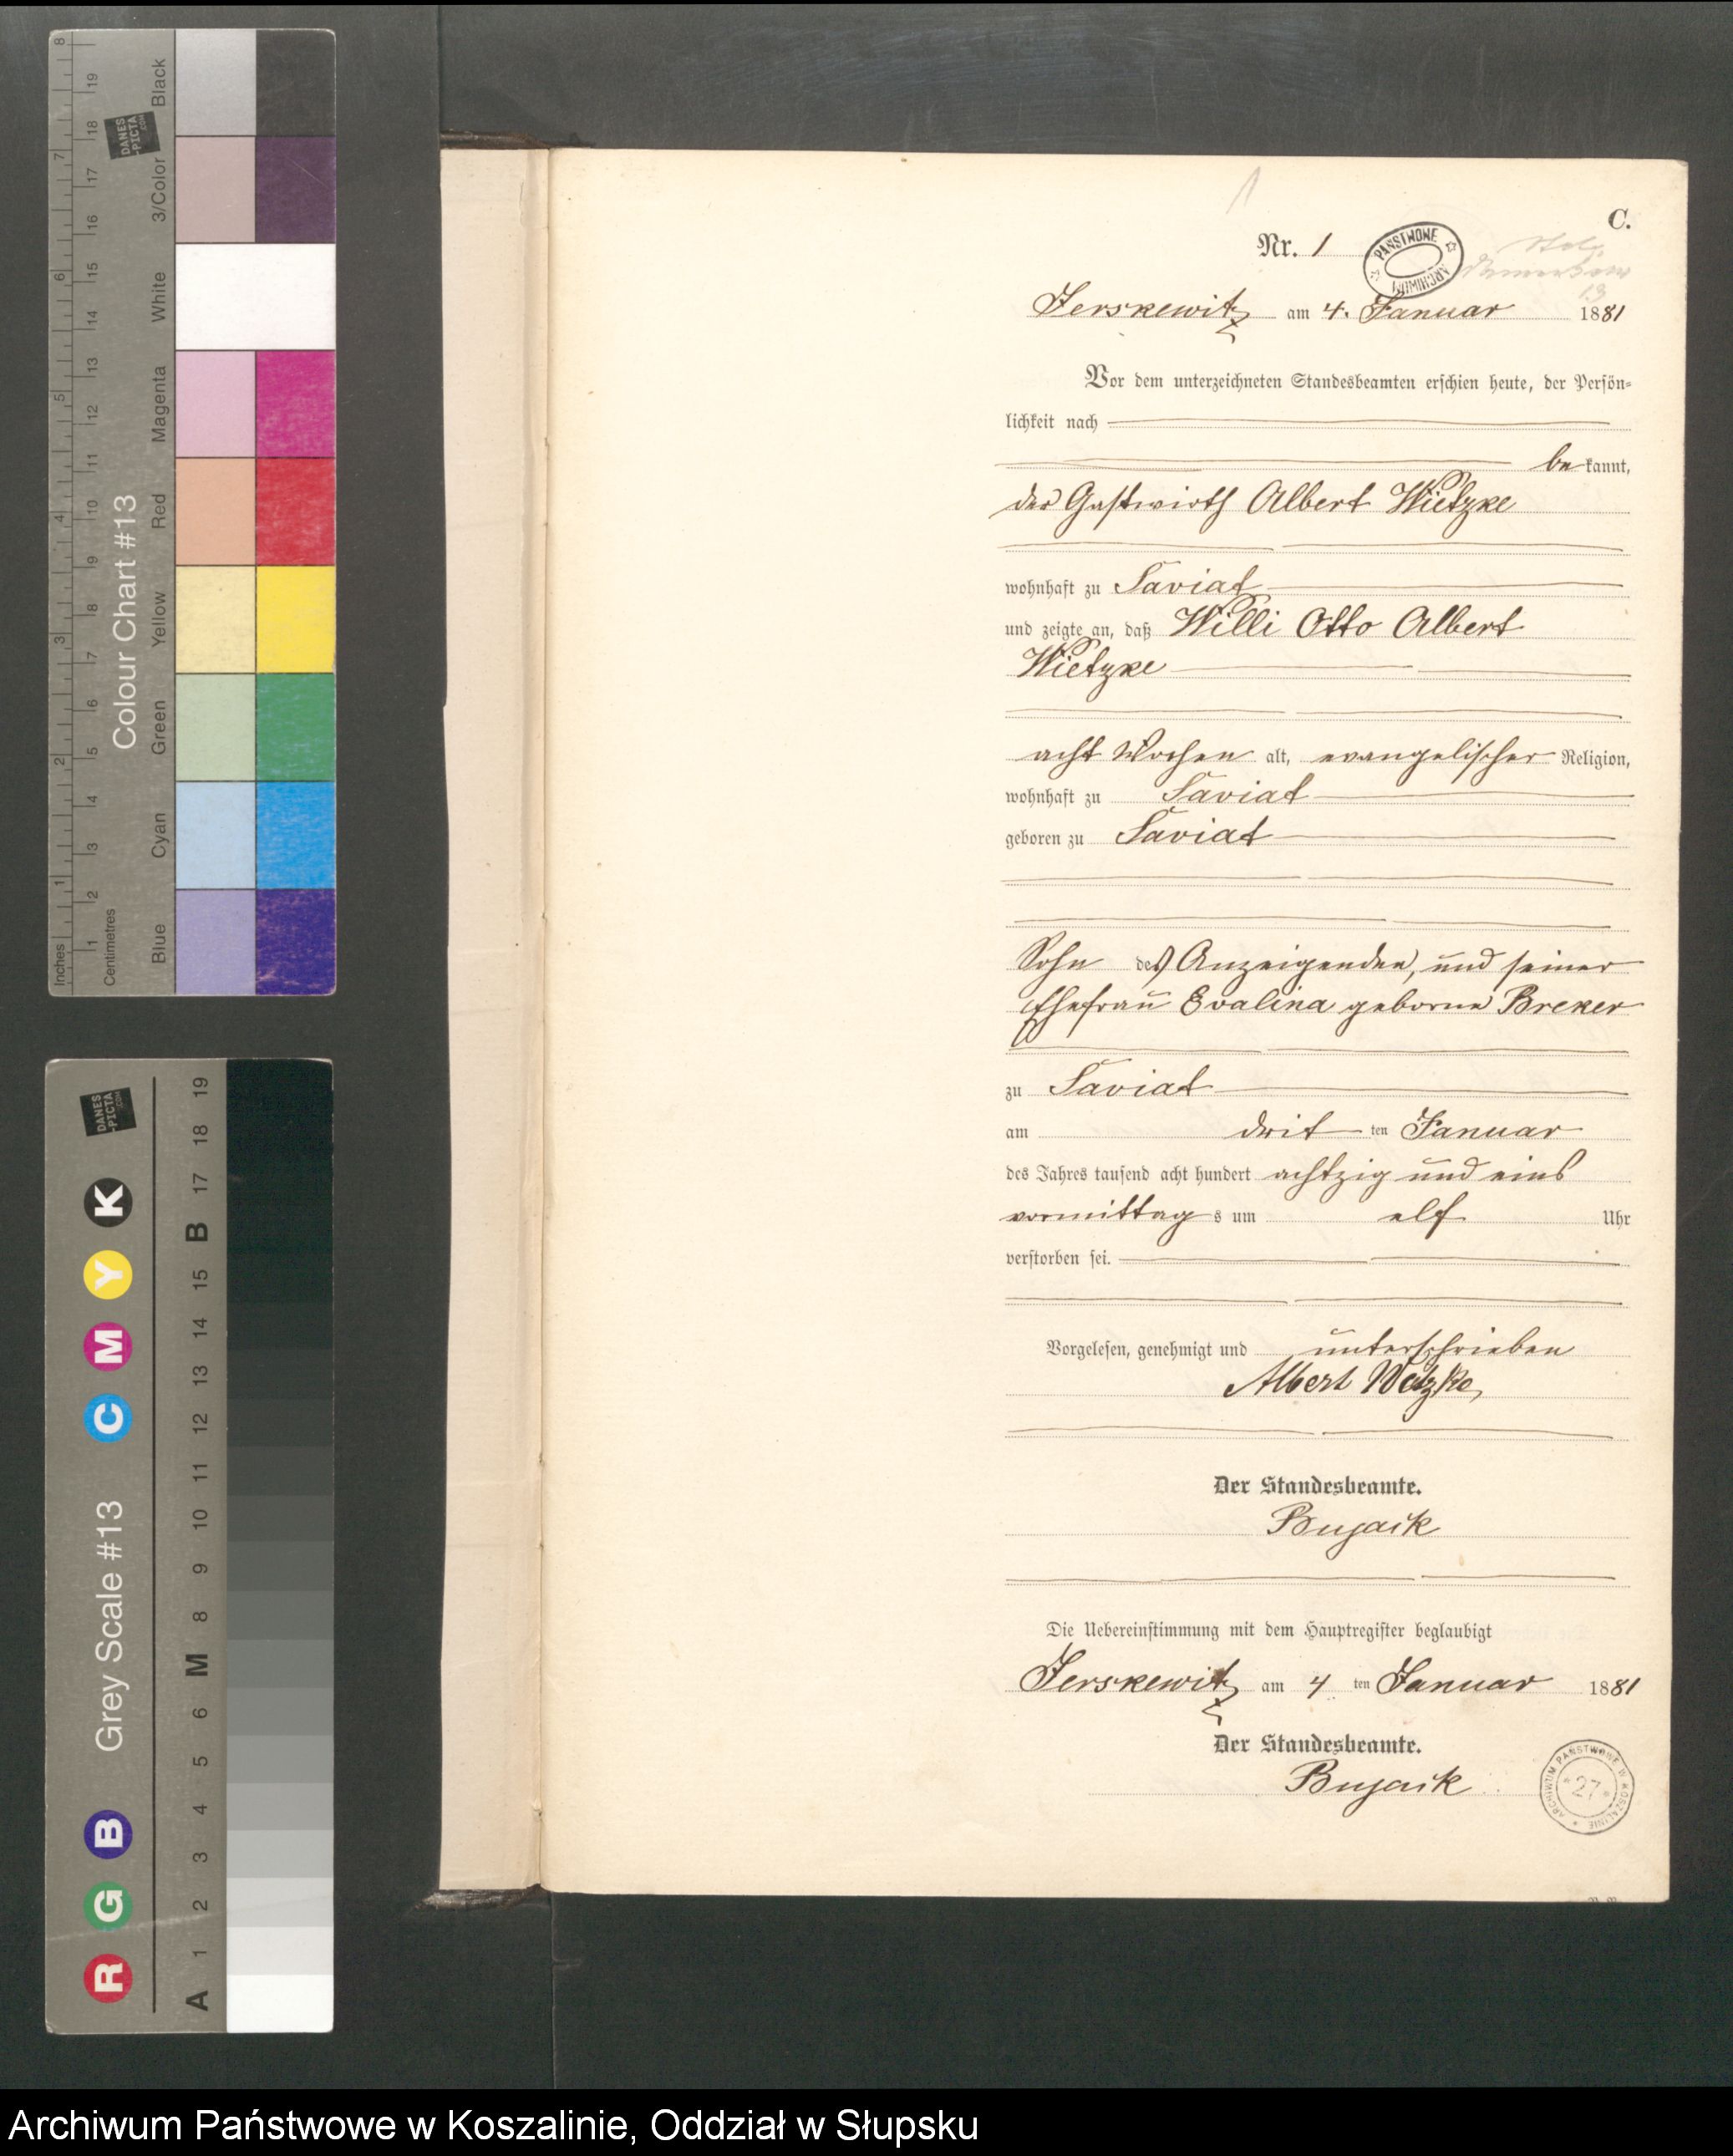 C.
Nr. 1
PAŃSTWOWE ARCHIWUM
Jerskewitz am 4. Januar 1881
Vor dem unterzeichneten Standesbeamten erschien heute, der Persön-
lichkeit nach
be kannt,
der Gastwirth Albert Wietzke
wohnhaft zu Saviat
und zeigte an, daß Willi Otto Albert
Wietzke
acht Wochen alt, evangelischer Religion,
wohnhaft zu Saviat
geboren zu Saviat
Sohn des Anzeigenden, und seiner
Ehefrau Evalina geborne Breker
zu Saviat
am drit ten Januar
des Jahres tausend acht hundert achtzig und eins
vormittag s um elf Uhr
verstorben sei.
Vorgelesen, genehmigt und unterschrieben
Albert Wetzke
Der Standesbeamte.
Bujack
Die Uebereinstimmung mit dem Hauptregister beglaubigt
Jerskewitz am 4 ten Januar 1881
Der Standesbeamte.
Bujack
ARCHIWUM PAŃSTWOWE W KOSZALINIE
27
Colour Chart #13
Blue Cyan Green Yellow Red Magenta White 3/Color Black
Inches 1 2 3 4 5 6 7 8
Centimetres 1 2 3 4 5 6 7 8 9 10 11 12 13 14 15 16 17 18 19
DANES
-PICTA
.COM
Grey Scale #13
R G B C M Y K
A 1 2 3 4 5 6 M 8 9 10 11 12 13 14 15 B 17 18 19
DANES
-PICTA
.COM
Archiwum Państwowe w Koszalinie, Oddział w Słupsku